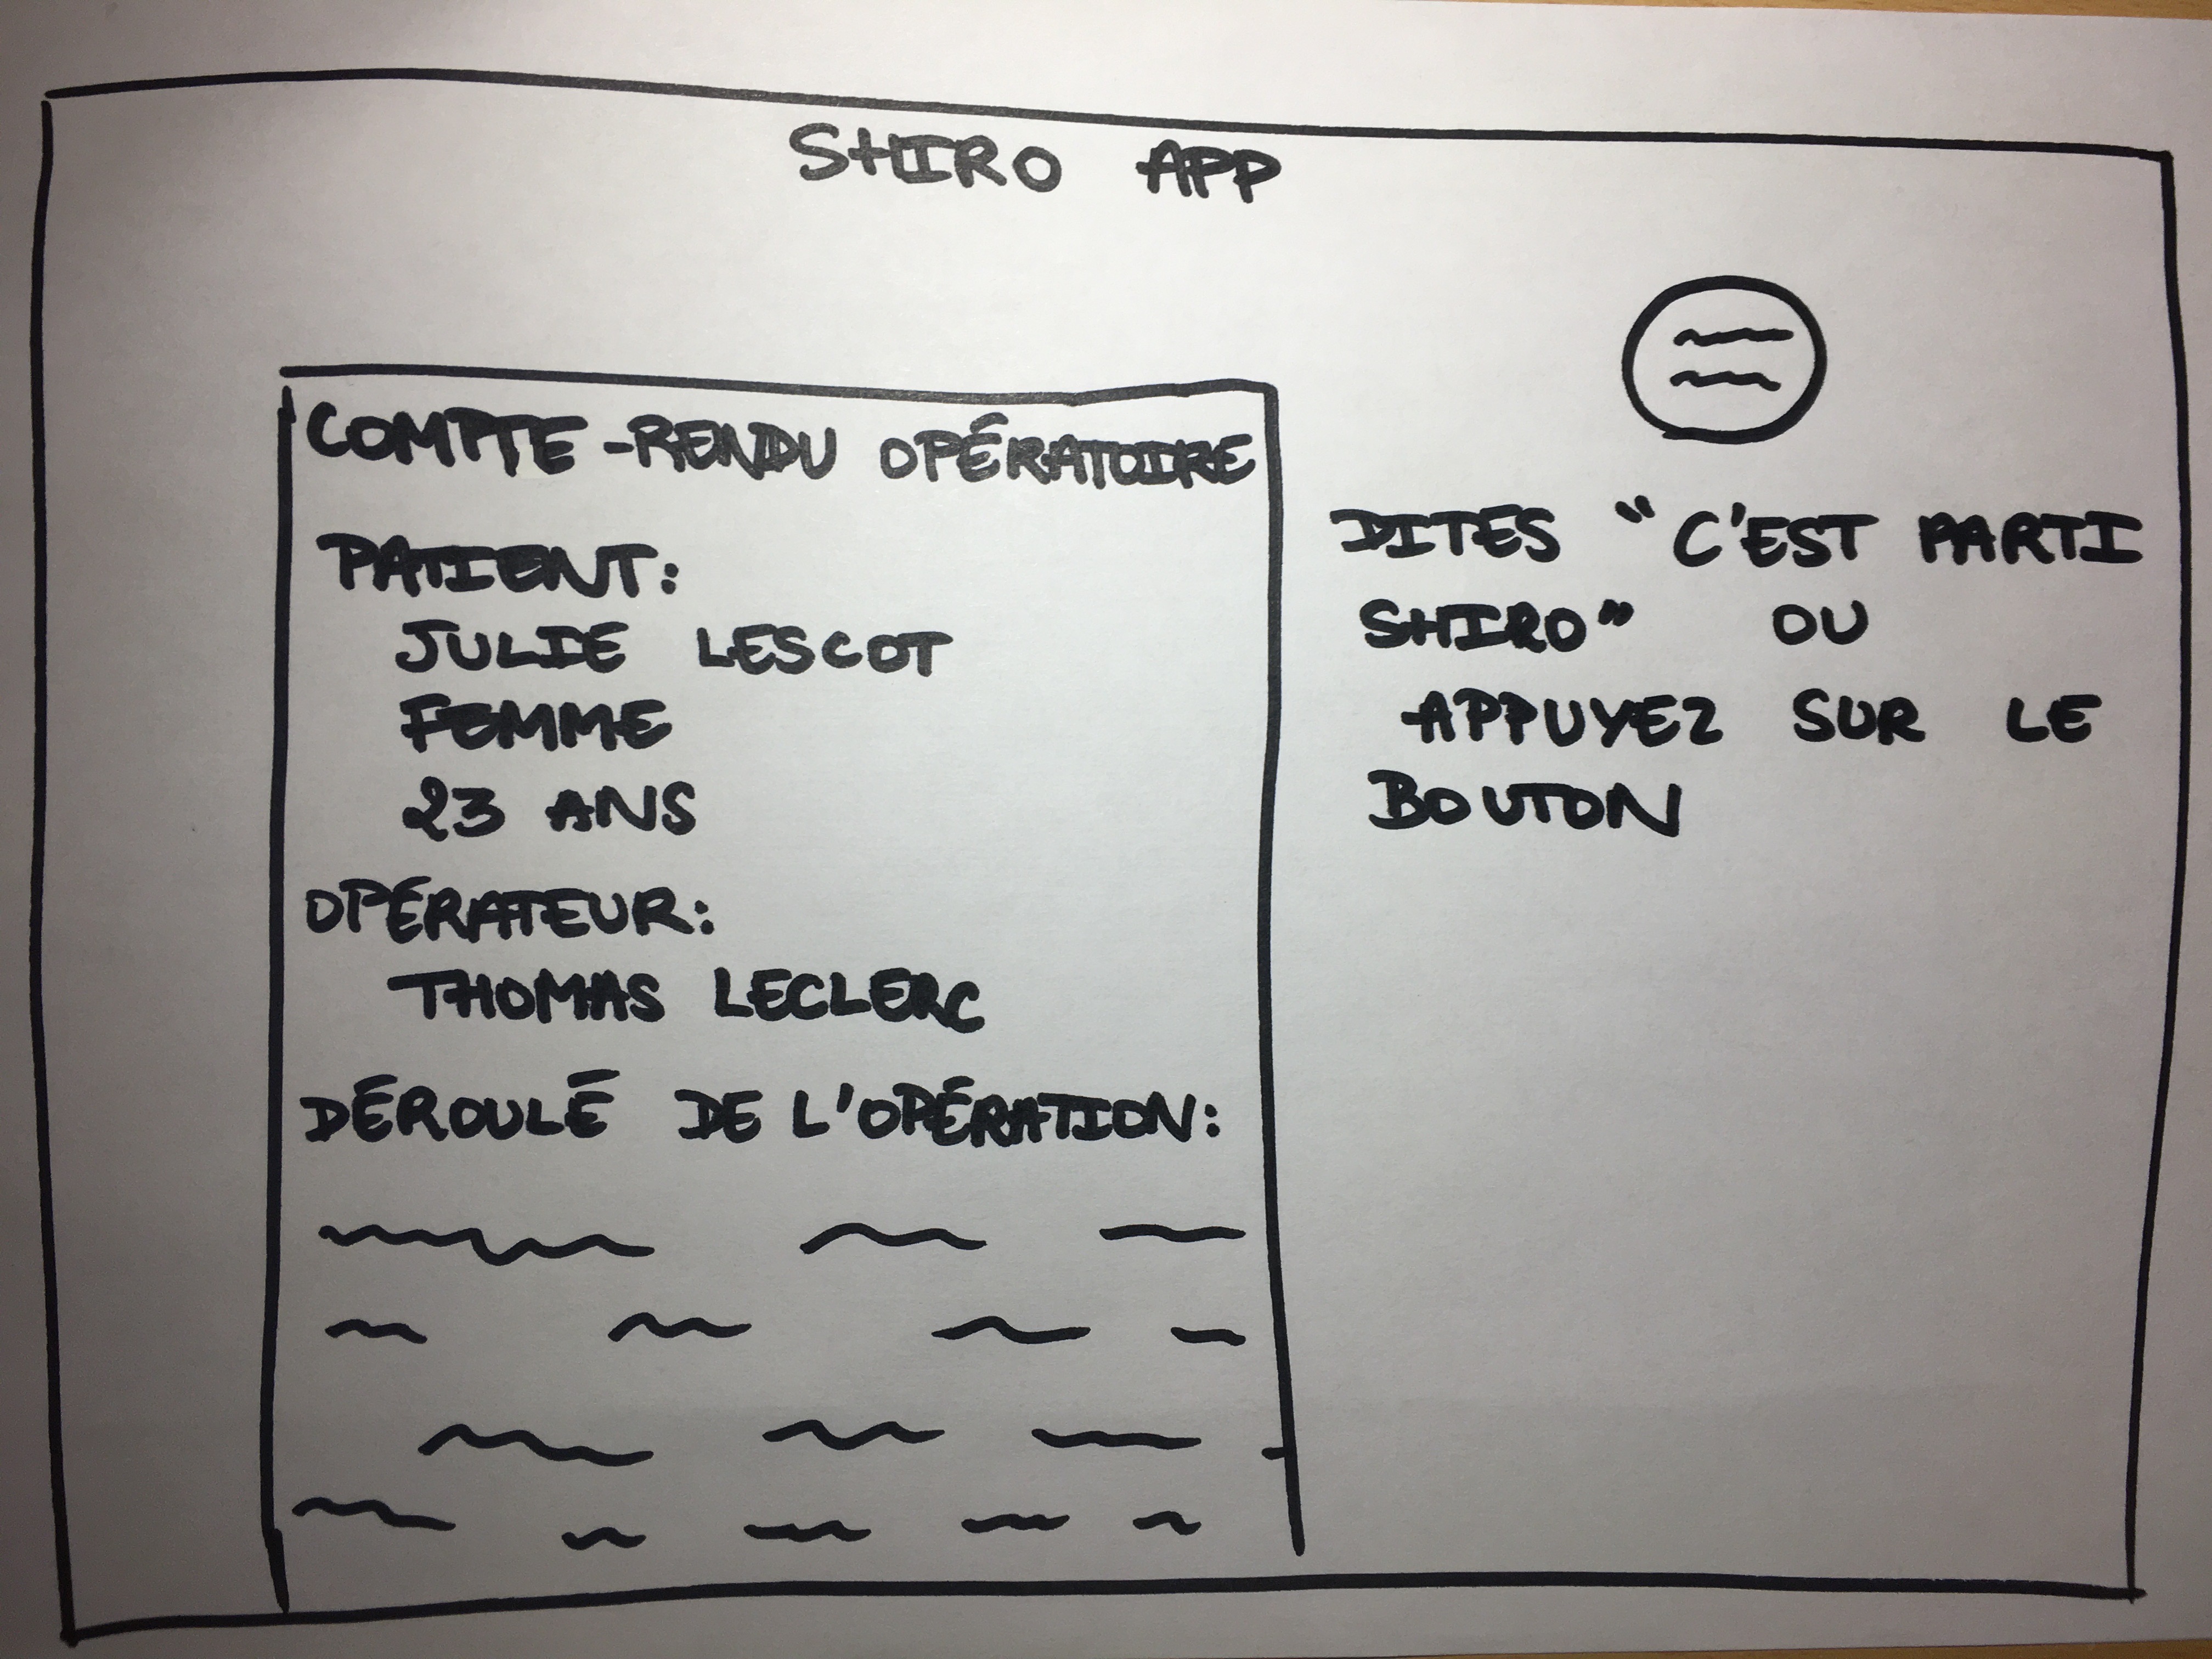 SHIRO APP
COMPTE-RENDU OPÉRATOIRE
PATIENT:
JULIE LESCOT
FEMME
23 ANS
OPÉRATEUR:
THOMAS LECLERC
DÉROULÉ DE L'OPÉRATION:
DITES "C'EST PARTI
SHIRO" OU
APPUYEZ SUR LE
BOUTON